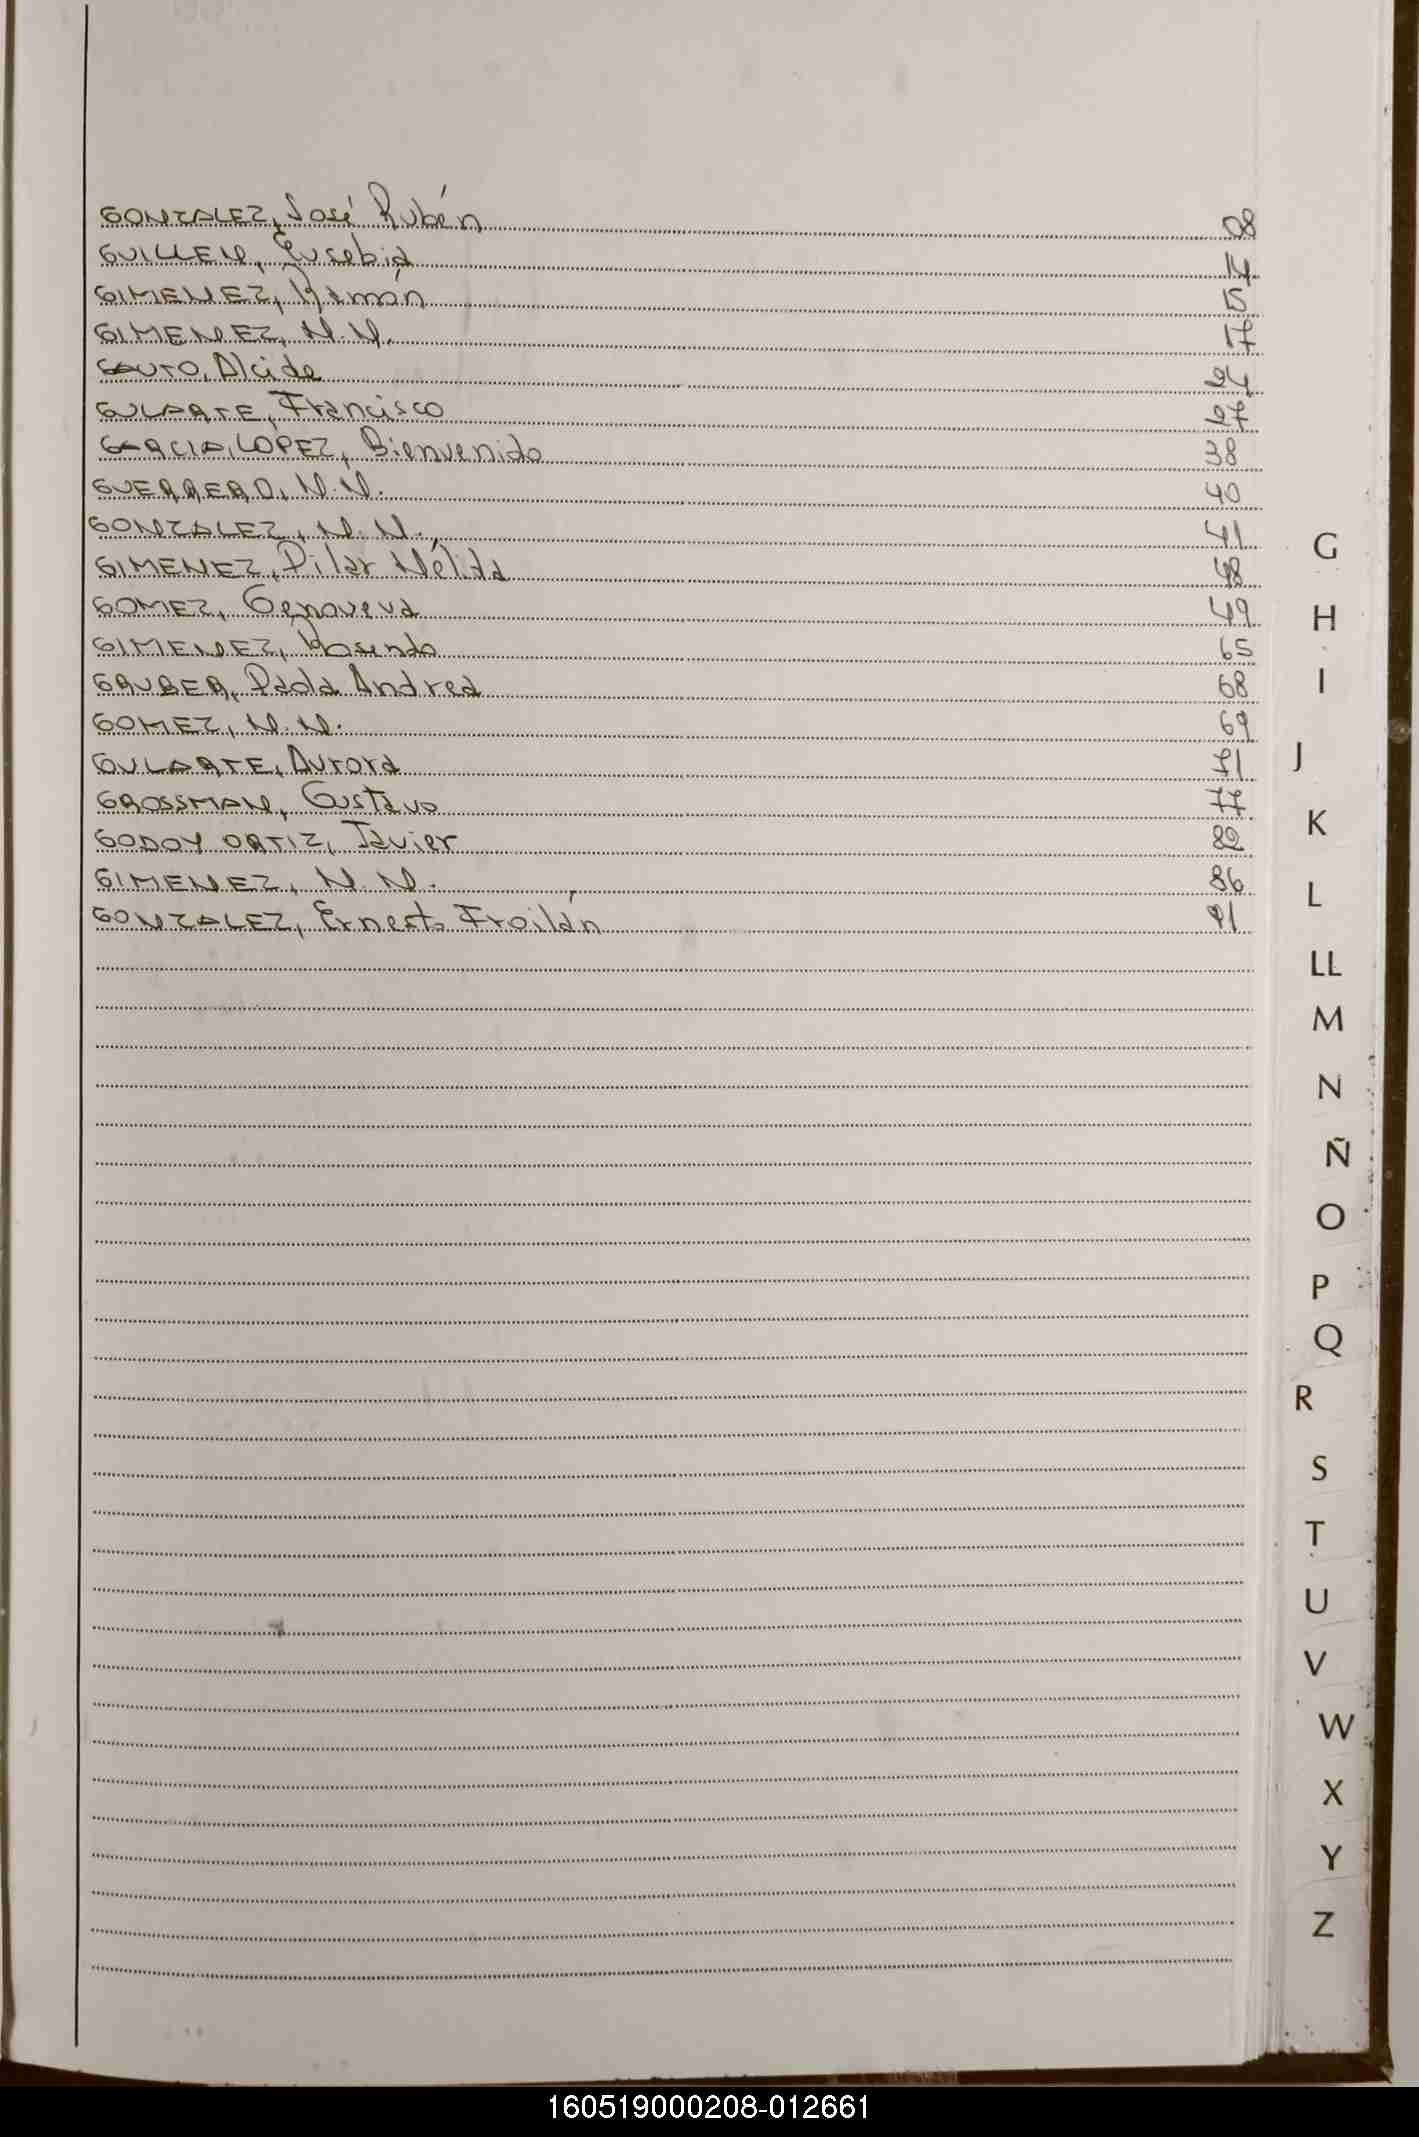 GONZALEZ, José Rubén 08
GUILLEN, Eusebia 14
GIMENEZ, Ramón 15
GIMENEZ, N.N. 17
GAUTO, Alcide 24
GULARTE, Francisco 27
GARCIA LOPEZ, Bienvenido 38
GUERRERO, N.N. 40
GONZALEZ, N.N. 41
GIMENEZ, Pilar Nélida 48
GOMEZ, Genoveva 49
GIMENEZ, Rosendo 65
GRUBER, Paola Andrea 68
GOMEZ, N.N. 69
GULARTE, Aurora 71
GROSSMAN, Gustavo 77
GODOY ORTIZ, Javier 82
GIMENEZ, N.N. 86
GONZALEZ, Ernesto Froilán 91
G
H
I
J
K
L
LL
M
N
Ñ
O
P
Q
R
S
T
U
V
W
X
Y
Z
160519000208-012661